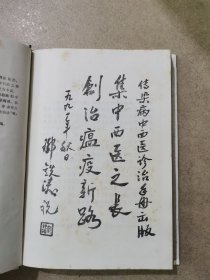 传染病中西医诊治手册出版
集中西医之长
创治瘟疫新路
一九九二年秋日
邓铁涛说